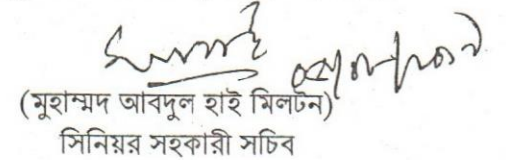 (মুহাম্মদ আবদুল হাই মিলটন)
সিনিয়র সহকারী সচিব